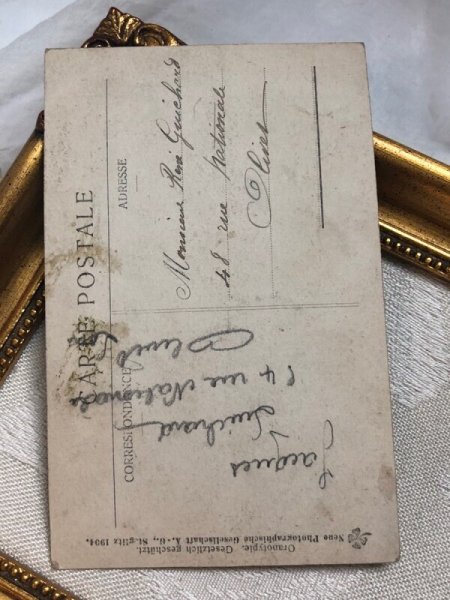 CARTE POSTALE
CORRESPONDANCE
ADRESSE
Monsieur René Guichard
48 rue Nationale
Jacques
Guichard
rue Nationale
Oranotypie. Gesetzlich geschützt.
Neue Photographische Gesellschaft A.-G., Steglitz 1904.